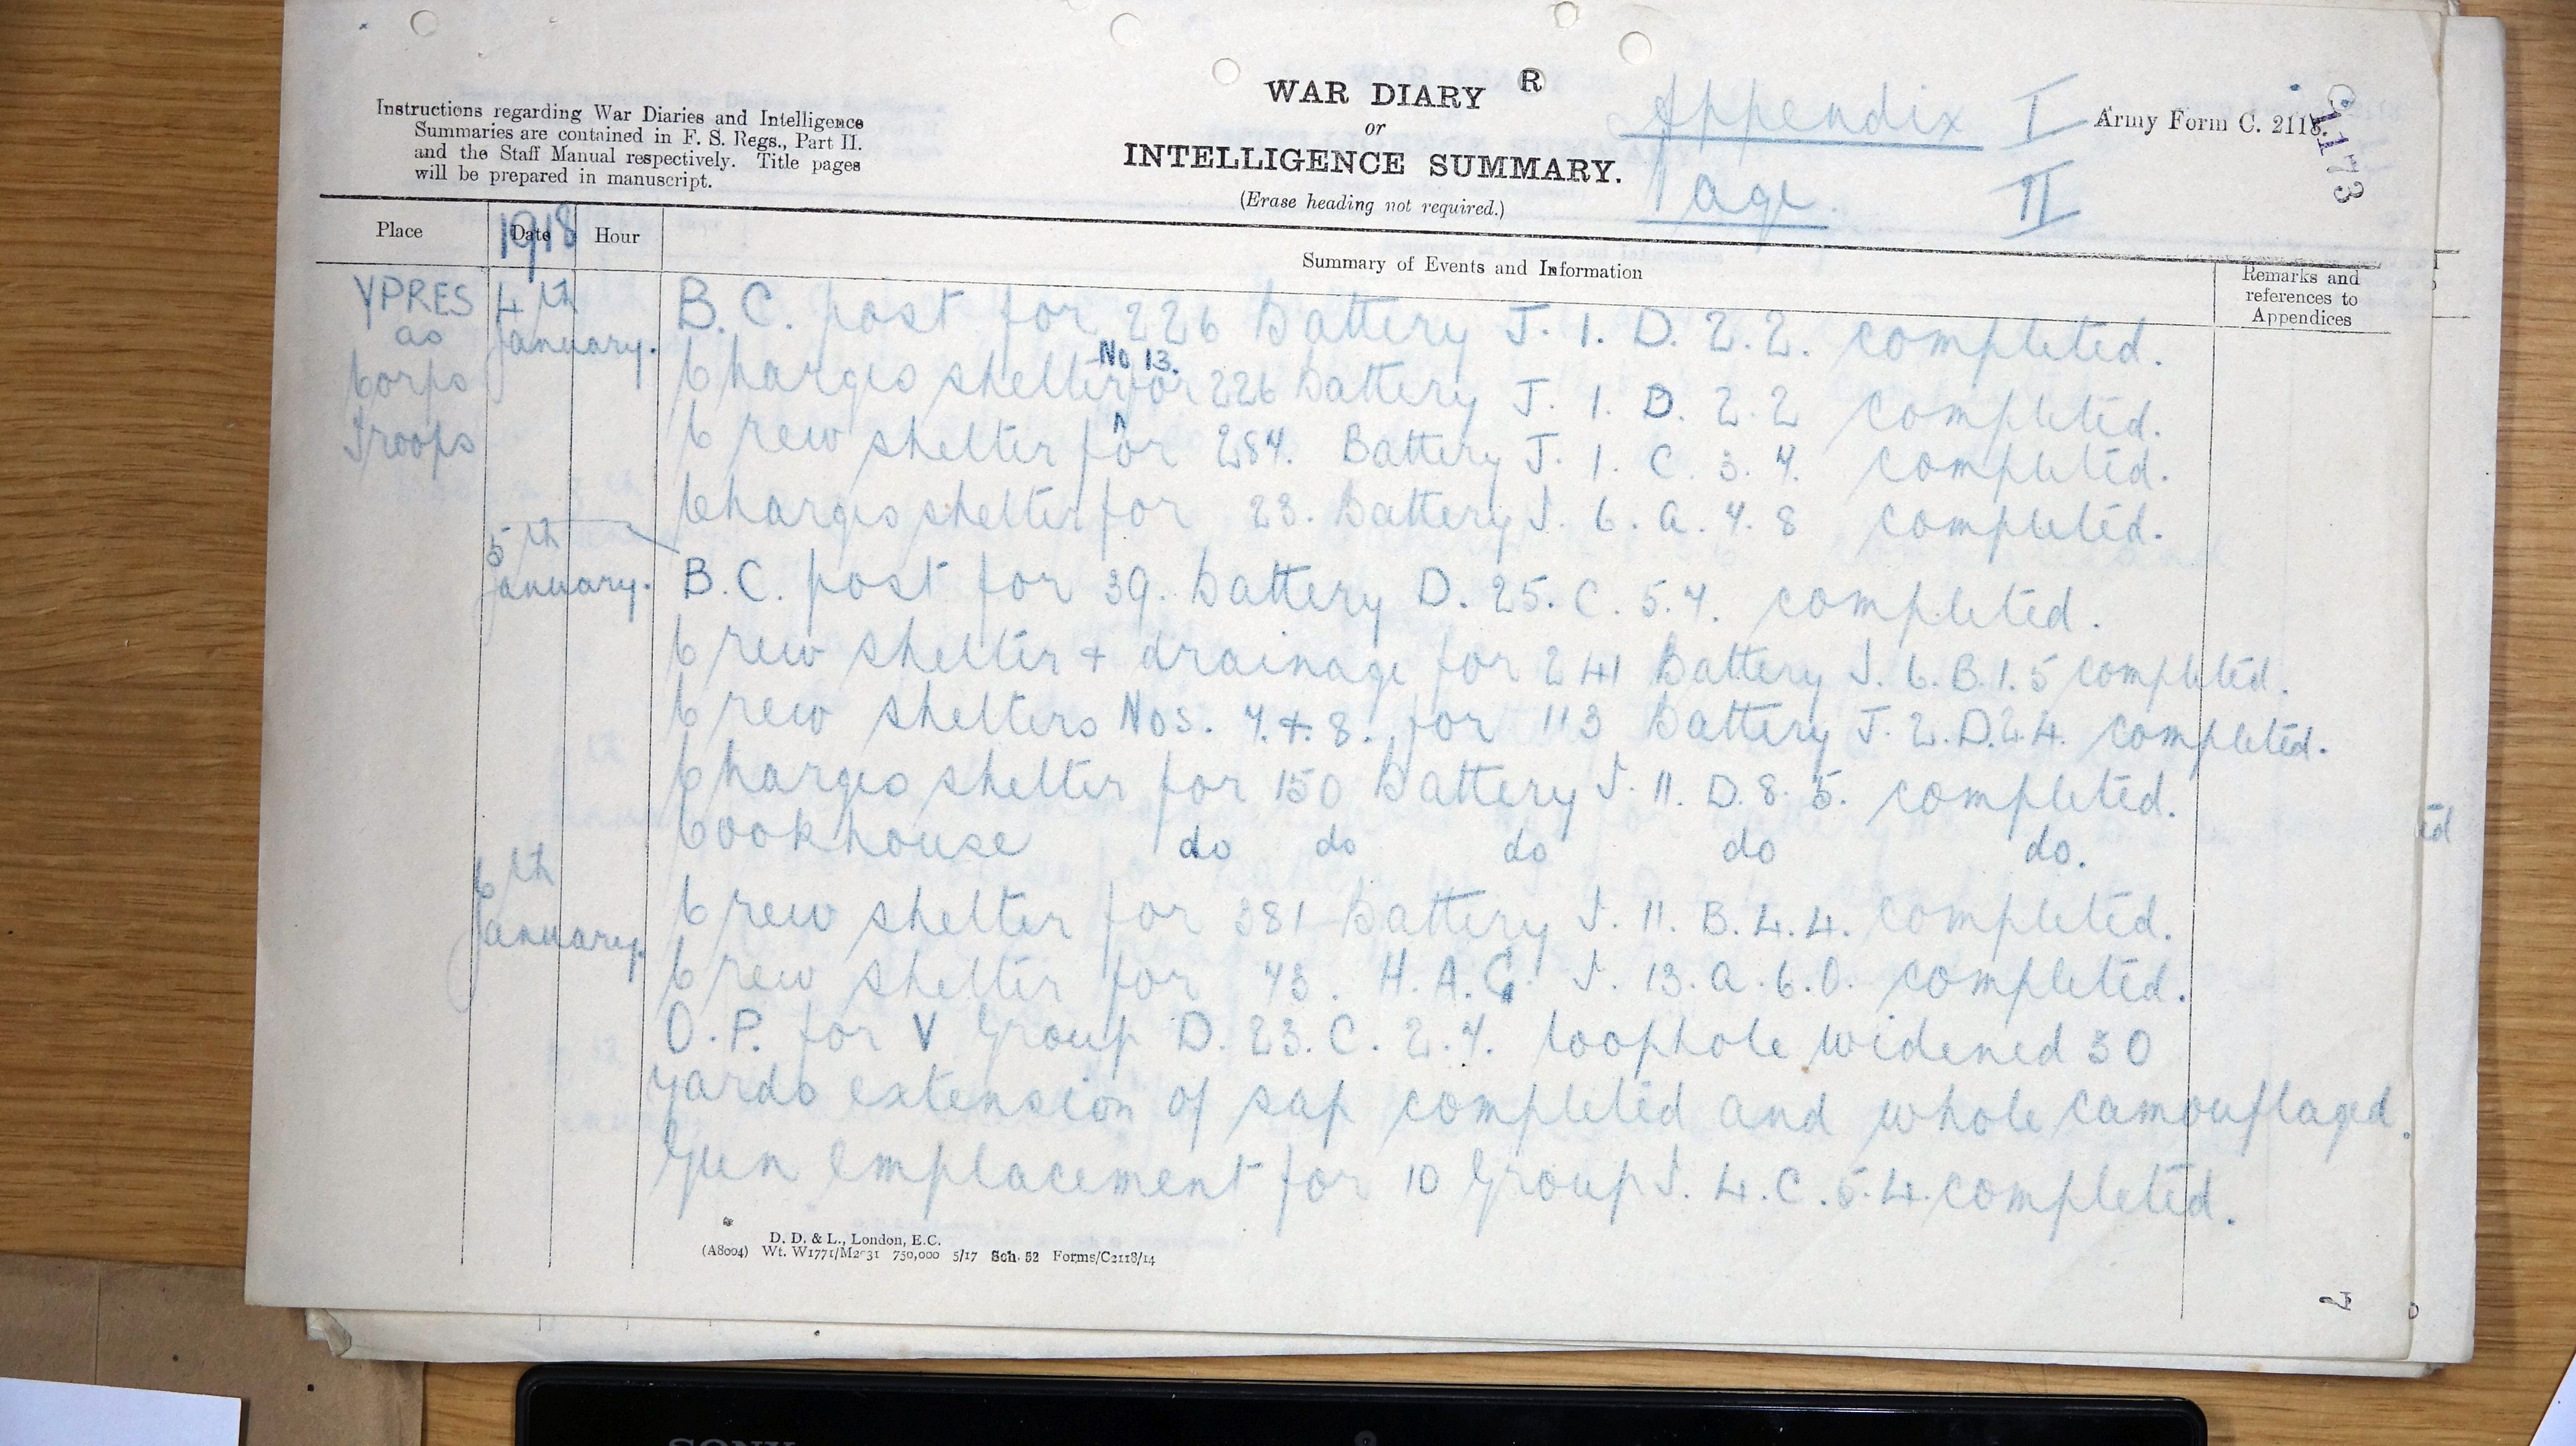 WAR DIARY R
or
INTELLIGENCE SUMMARY.
(Erase heading not required.)
Instructions regarding War Diaries and Intelligence
Summaries are contained in F. S. Regs., Part II.
and the Staff Manual respectively. Title pages
will be prepared in manuscript.
Appendix I
Page II
Army Form C. 2118.
Place
1918
Date
Hour
Summary of Events and Information
Remarks and
references to
Appendices
YPRES
as
Corps
Troops
4th
January.
B.C. post for 226 Battery J. 1. D. 2.2. completed.
Charges shelter No 13. for 226 Battery J. 1. D. 2.2 completed.
Crew shelter for 284. Battery J. 1. C. 3. 7. completed.
Charges shelter for 23. Battery J. 6. a. 7. 8 completed.
5th
January.
B.C. post for 39. Battery D. 25. C. 5.7. completed.
Crew shelter + drainage for 241 Battery J. 6. B. 1. 5 completed.
Crew shelters Nos. 7. + 8. for 113 Battery J. 2. D. 2.4. completed.
Charges shelter for 150 Battery J. 11. D. 8. 5. completed.
Cookhouse do do do do do.
6th
January.
Crew shelter for 381 Battery J. 11. B. 4.4. completed.
Crew shelter for 73. H.A.G. J. 13. a. 6. 0. completed.
O.P. for V Group D. 23. C. 2.7. loophole widened 30
yards extension of sap completed and whole camouflaged.
Gun emplacement for 10 Group J. 4. C. 5. 4. completed.
D. D. & L., London, E.C.
(A8004) Wt. W1771/M2031 750,000 5/17 Sch. 52 Forms/C2118/14
SONY